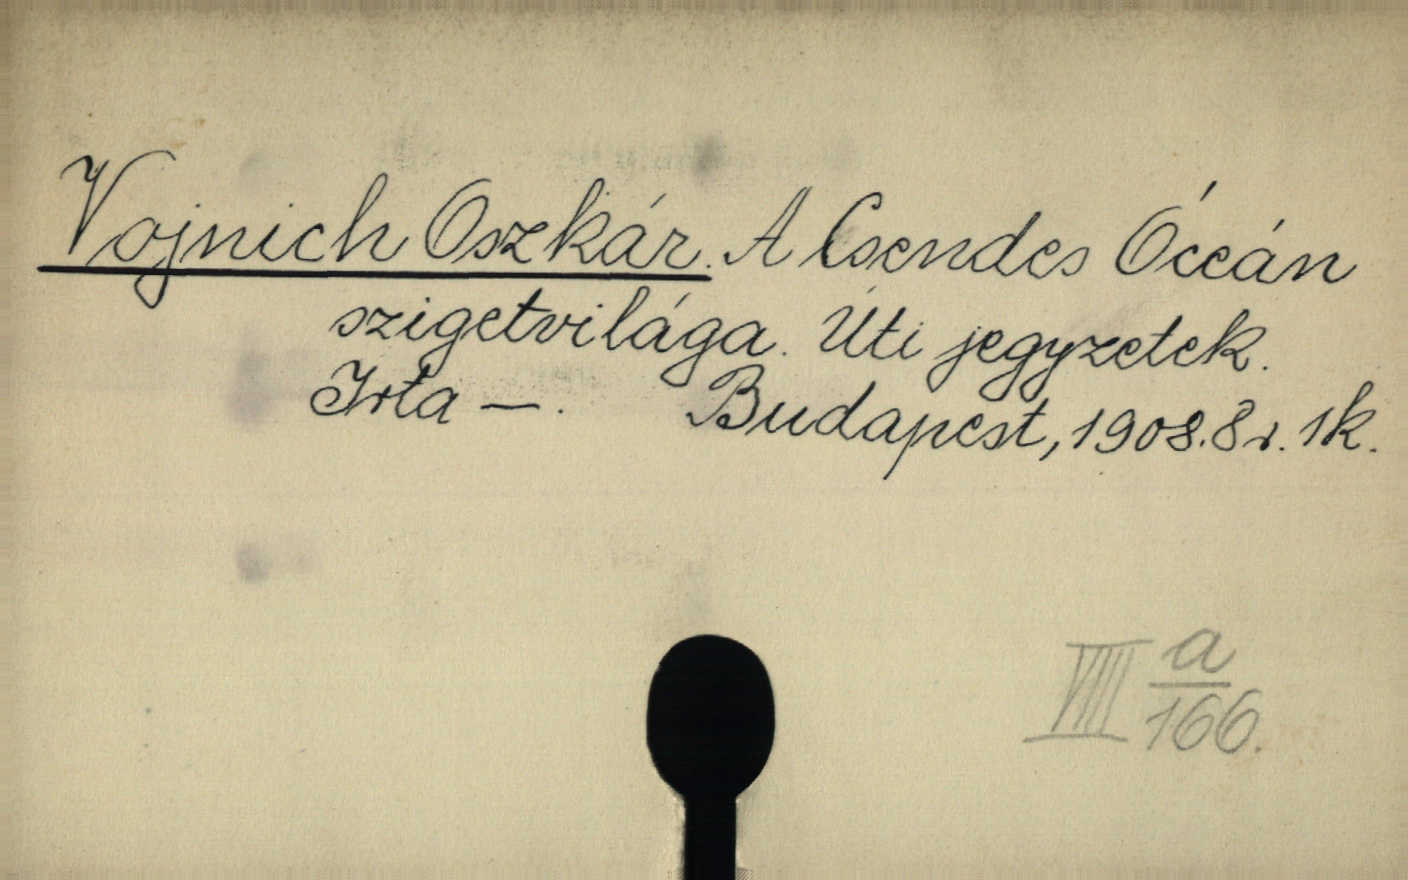 Vojnich Oszkár. A Csendes Óceán
szigetvilága. Úti jegyzetek.
Irta —. Budapest, 1908. 8r. 1k.
VIII a/166.